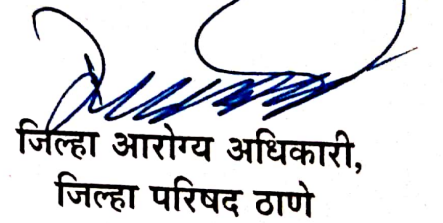 जिल्हा आरोग्य अधिकारी,
जिल्हा परिषद ठाणे